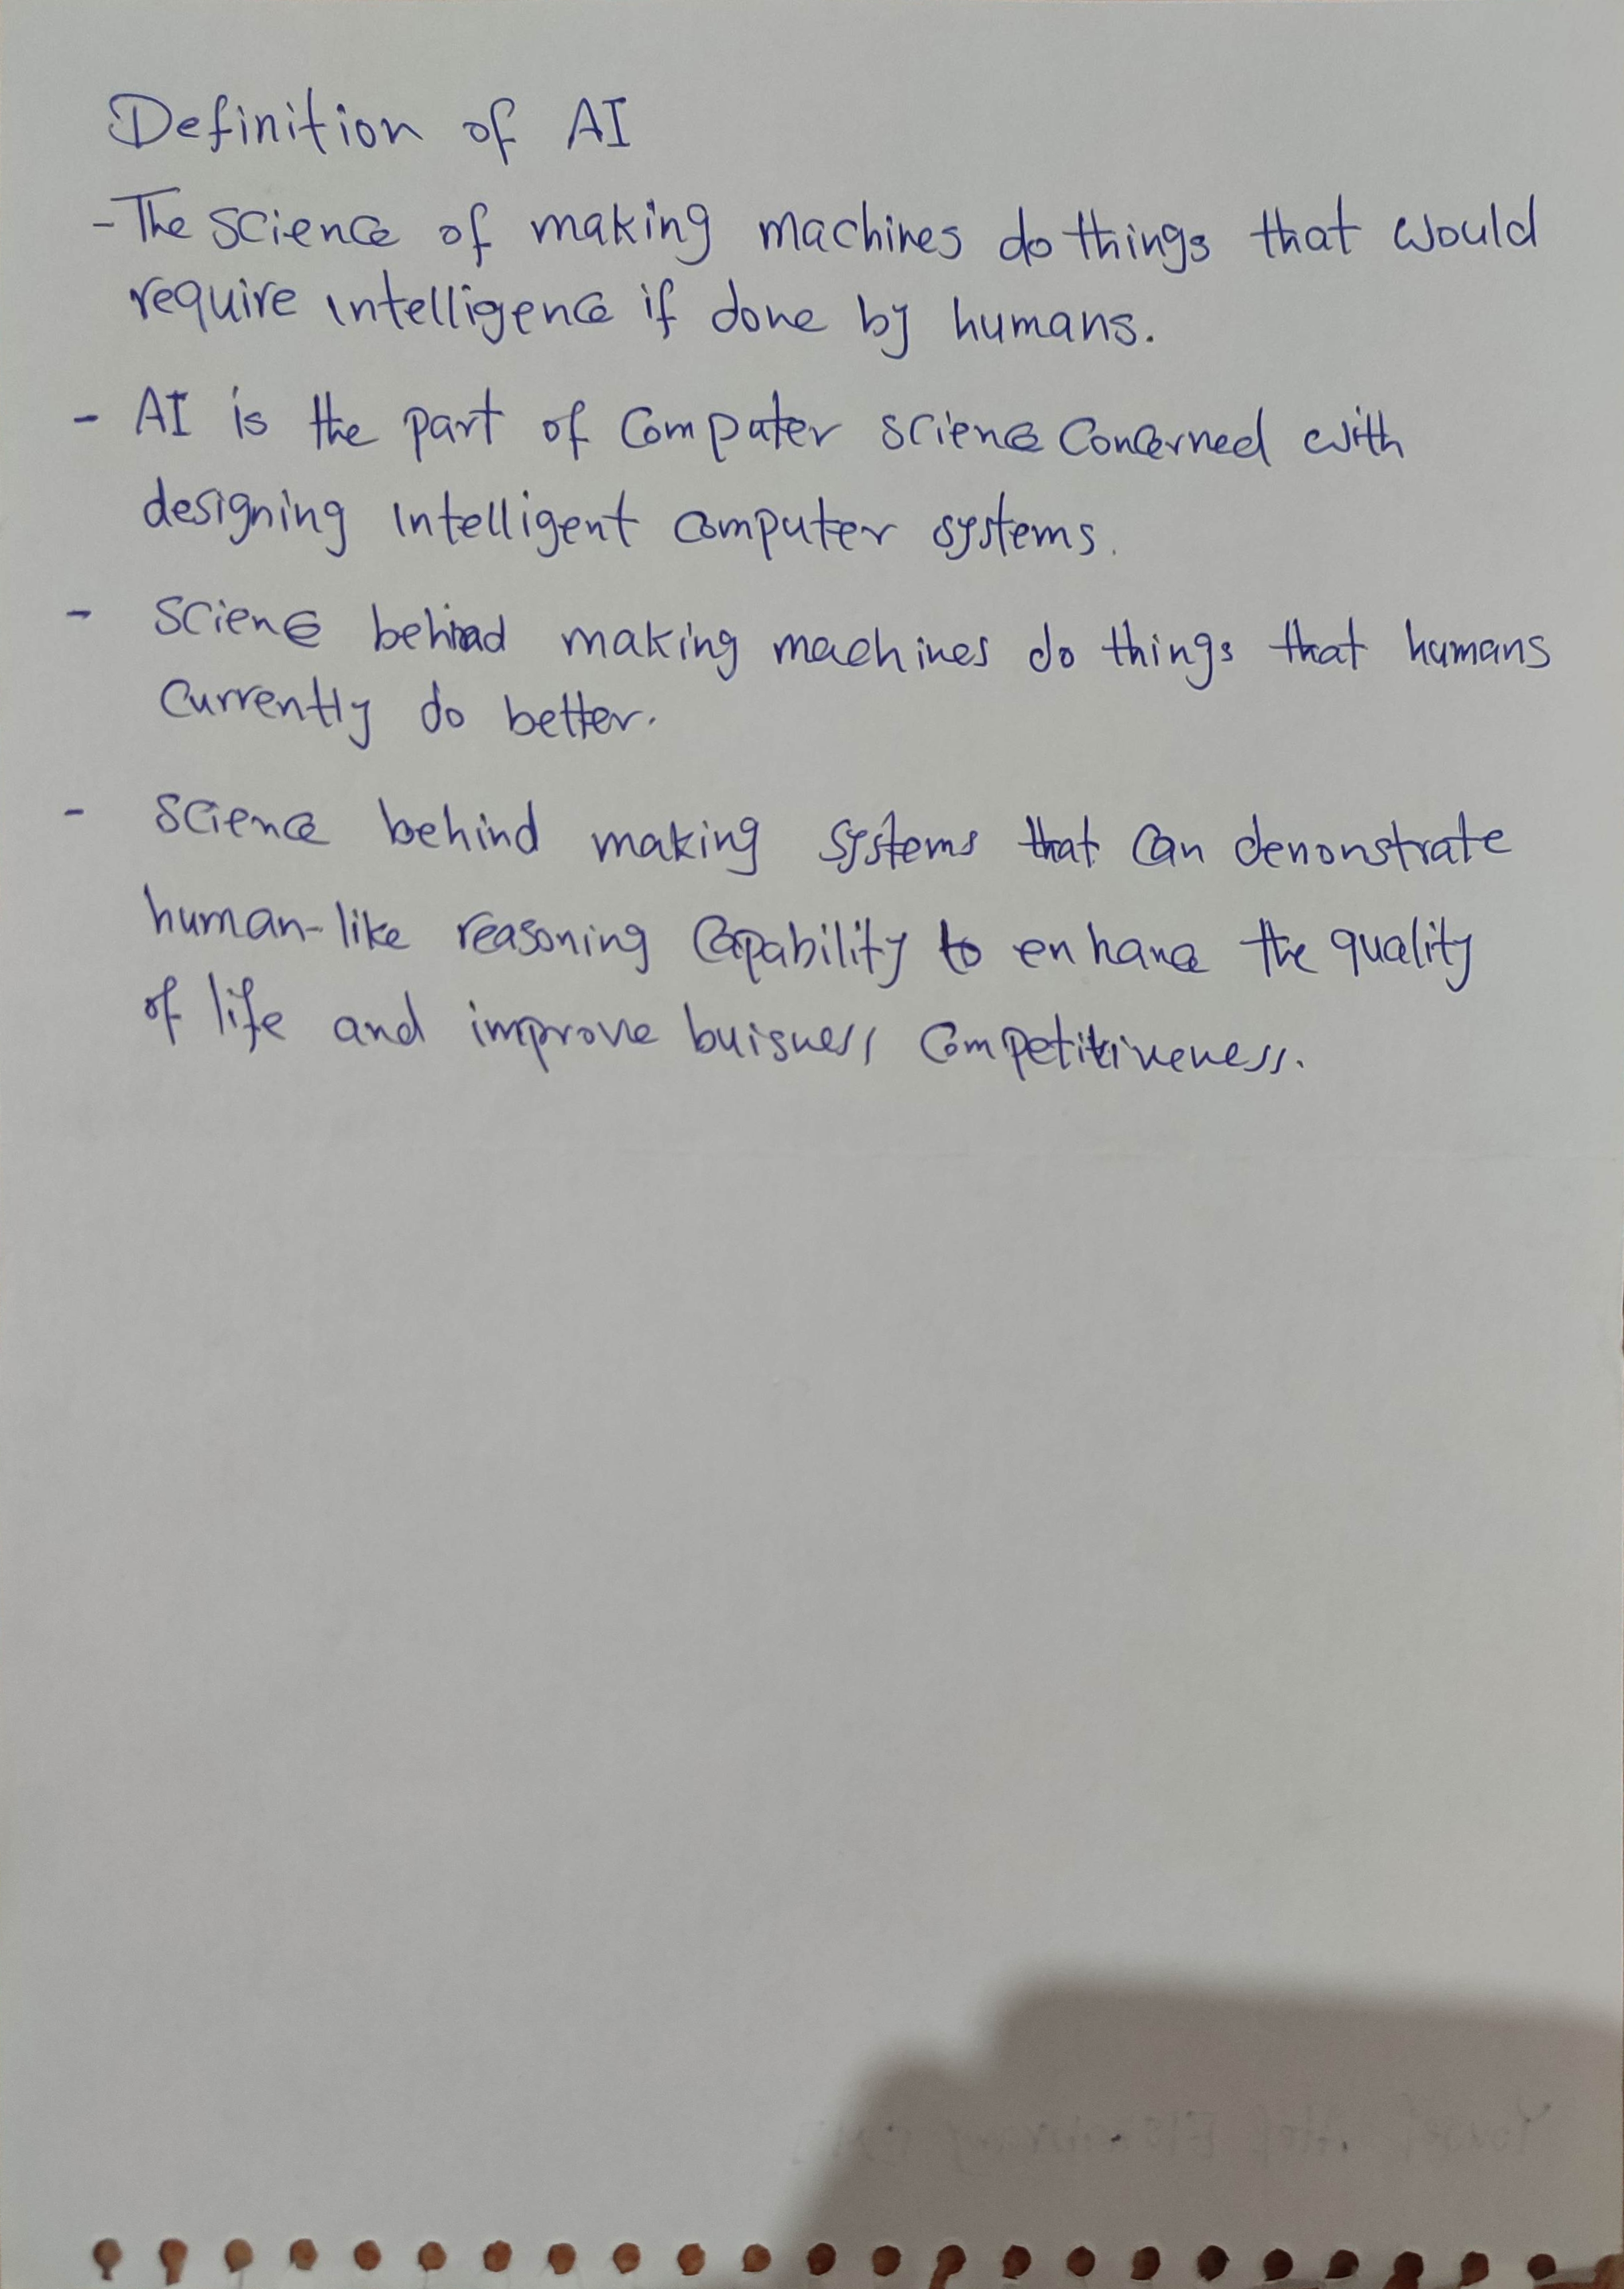 Definition of AI
- The science of making machines do things that would
require intelligence if done by humans.
- AI is the part of Computer science Concerned with
designing intelligent computer systems.
- Science behind making machines do things that humans
Currently do better.
- Science behind making systems that can demonstrate
human-like reasoning Capability to enhance the quality
of life and improve buisness Competitiveness.